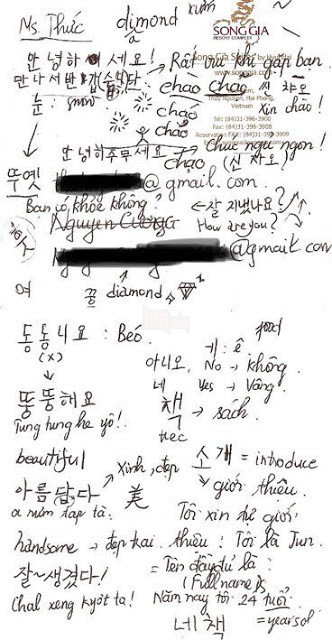 Ns. Thức
dimond
xuân
SONG GIA
RESORT COMPLEX
안녕하세요! → Rất vui khi gặp bạn.
만나서 반갑습니다
www.songgia.com
chào chao 씬 짜오
눈: snow
Thuy Nguyen, Hai Phong,
Vietnam
xin chào!
chao
Tel: (84)31-396-3900
chao
Reservation FAX: (84)31-396-3909
chúc ngủ ngon!
안녕히주무세요
chao (신 짜오)
뚜엣
@gmail.com
Bạn có khỏe không?
잘 지냈나요?
Nguyen Cuong
How are you?
@gmail.com
여
꿈 diamond
동동니요 : Béo
(x)
food
게 : ê
아니오, No → không
네 Yes → Vâng
뚱뚱해요
Tung tung he yô!
책 → sách
beautiful
Xinh, đẹp
소개 = introduce
giới thiệu
아름답다
美
a rưm tap ta.
Tôi xin tự giới
handsome → đẹp trai
thiệu : Tôi là Jun.
= Tên đầy đủ là :
잘~생겼다!
(Full name)
Chal xeng kyọt ta!
Năm nay tôi 24 tuổi.
네 책